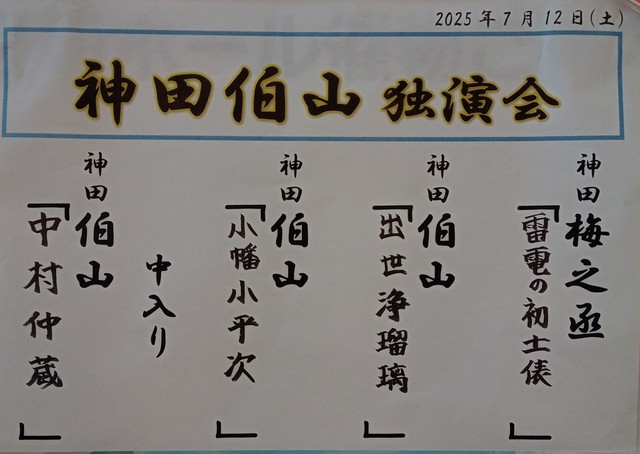 2025年7月12日(土)
神田伯山 独演会
神田梅之丞
「雷電の初土俵」
神田伯山
「出世浄瑠璃」
神田伯山
「小幡小平次」
中入り
神田伯山
「中村仲蔵」